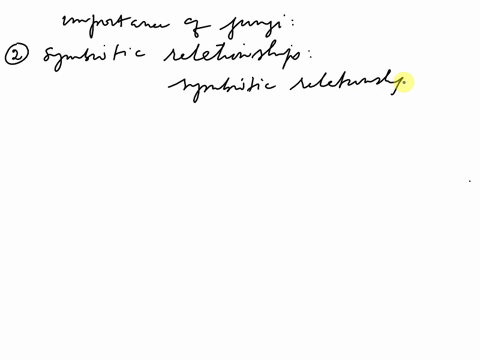 importance of fungi:
② symbiotic relationships:
symbiotic relationship